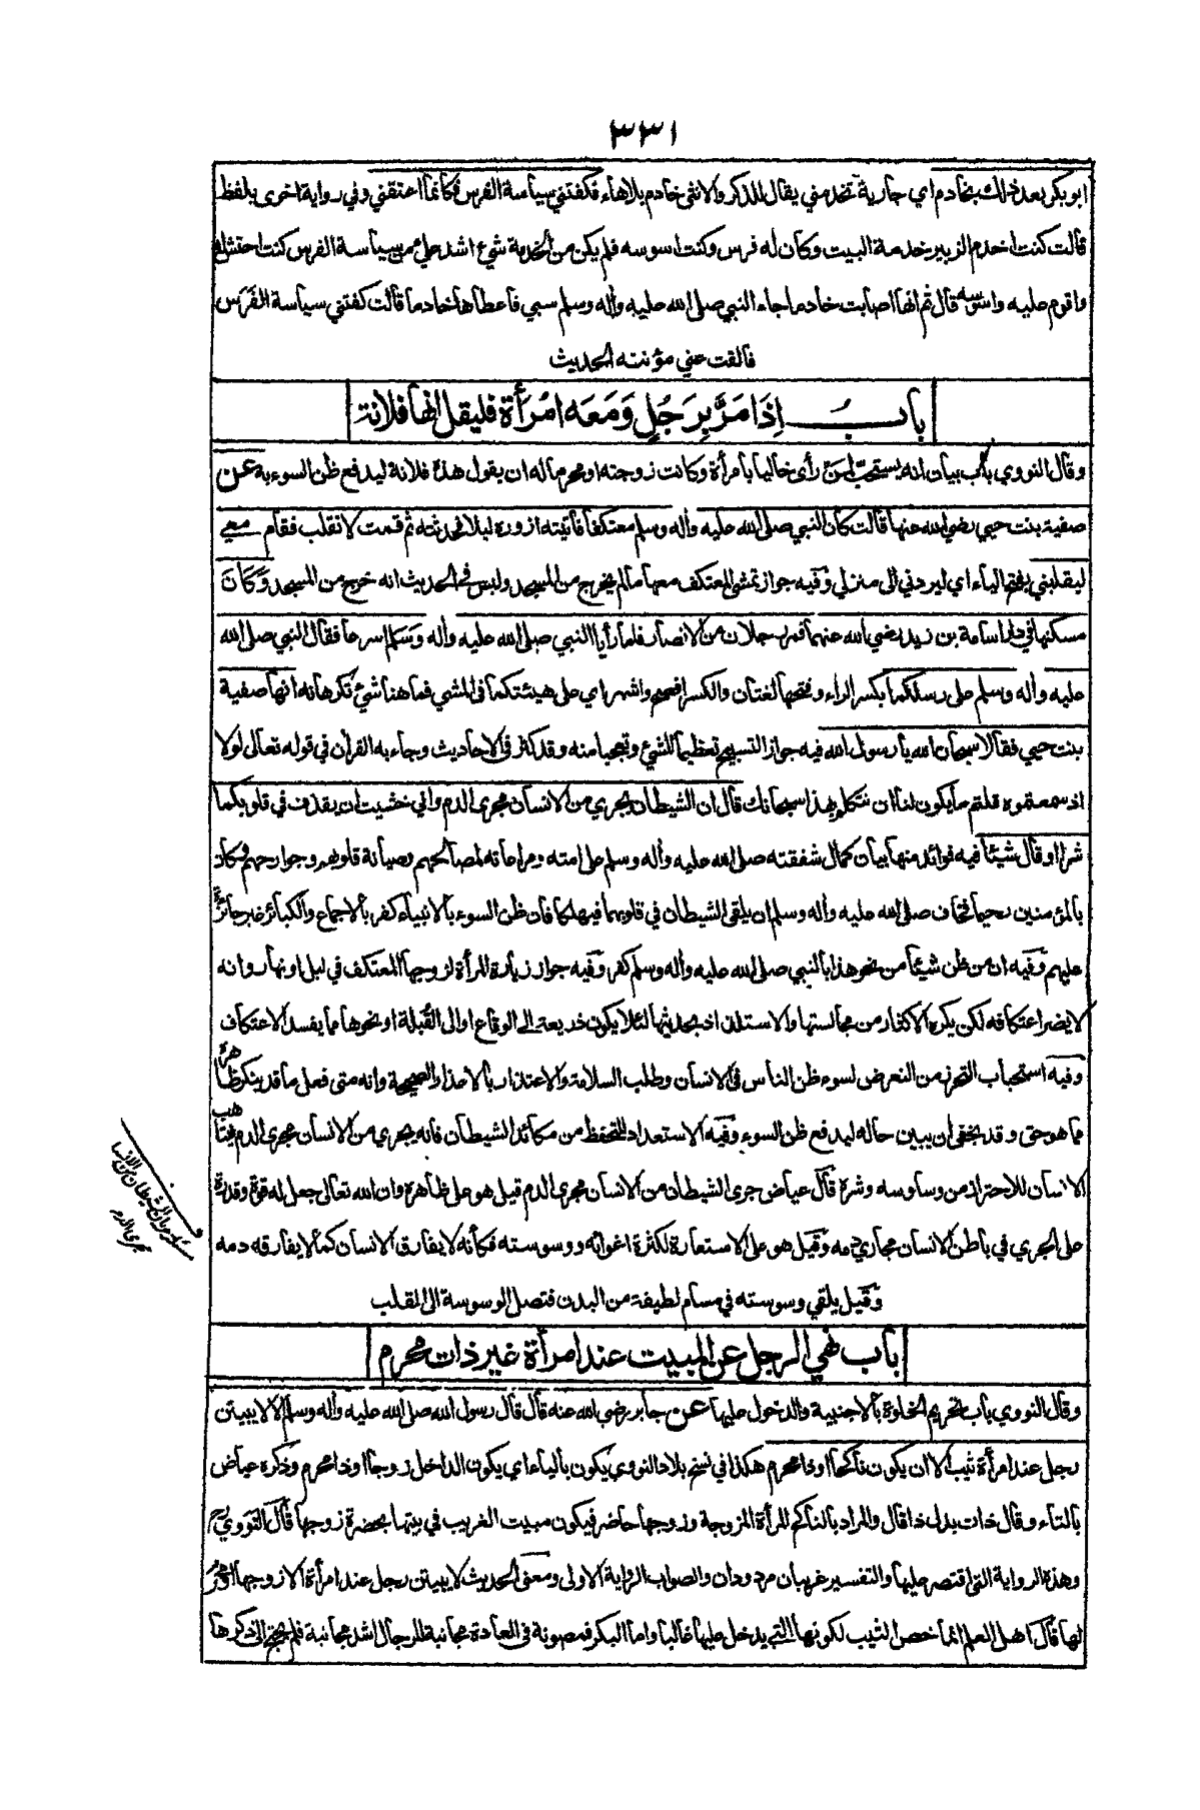 ٣٣١
ابو بكر بعد ذلك بخادم اي جارية تخدمني يقال للذكر والانثى خادم بلا هاء فكفتني سياسة الفرس فكأنما اعتقني وفي رواية اخرى بلفظ
قالت كنت اخدم الزبير خدمة البيت وكان له فرس وكنت اسوسه فلم يكن من الخدمة شيء اشد علي من سياسة الفرس كنت احتش له
واقوم عليه واسوسه قال ثم انها اصابت خادما جاء النبي صلى الله عليه وأله وسلم سبي فاعطاها خادما قالت كفتني سياسة الفَرَس
فالقت عني مؤنته الحديث
بابُ اِذَا مَرَّ بِرَجُلٍ وَمَعَه امْرَأَة فليقل انها فلانة
وقال النووي باب بيان انه يستحب لمن رأى خاليا بامرأة وكانت زوجته او محرما له ان يقول هذه فلانة ليدفع ظن السوء به عن
صفية بنت حيي رضي الله عنها قالت كان النبي صلى الله عليه وأله وسلم معتكفا فأتيته ازوره ليلا فحدثته ثم قمت لانقلب فقام معي
ليقلبني بفتح الياء اي ليردني الى منزلي وفيه جواز تمشي المعتكف معها ما لم يخرج من المسجد وليس في الحديث انه خرج من المسجد وَكَانَ
مسكنها في دار اسامة بن زيد رضي الله عنهما فمر رجلان من الانصار فلما رأيا النبي صلى الله عليه وأله وَسَلم اسرعا فقال النبي صلى الله
عليه وأله وسلم على رسلكما بكسر الراء وفتحها لغتان والكسر افصح واشهر اي على هيئتكما في المشي فما هنا شيء تكرهانه انها صفية
بنت حيي فقالا سبحان الله يا رسول الله فيه جواز التسبيح تعظيما للشيء وتعجبا منه وقد كثر في الاحاديث وجاء به القرأن في قوله تعالى لولا
اذ سمعتموه قلتم ما يكون لنا ان نتكلم بهذا سبحانك قال ان الشيطان يجري من الانسان مجرى الدم واني خشيت ان يقذف في قلوبكما
شرا او قال شيئا فيه فوائد منها بيان كمال شفقته صلى الله عليه وأله وسلم على امته ومراعاته لمصالحهم وصيانة قلوبهم وجوارحهم وكان
بالمؤمنين رحيما فخاف صلى الله عليه وأله وسلم ان يلقي الشيطان في قلوبهما فيهلكا فان ظن السوء بالانبياء كفر بالاجماع والكبائر غير جائزة
عليهم وفيه ان من ظن شيئا من نحو هذا بالنبي صلى الله عليه وأله وسلم كفر وفيه جواز زيارة المرأة لزوجها المعتكف في ليل او نهار وانه
لا يضر اعتكافه لكن يكره الاكثار من مجالستها والاستلذاذ بحديثها لئلا يكون ذريعة الى الوقاع او الى القُبلة او نحوها مما يفسد الاعتكاف
وفيه استحباب التحرز من التعرض لسوء ظن الناس في الانسان وطلب السلامة والاعتذار بالاعذار الصحيحة وانه متى فعل ما قد ينكر ظاهره
مما هو حق وقد يخفى ان يبين حاله ليدفع ظن السوء وفيه الاستعداد للتحفظ من مكائد الشيطان فانه يجري من الانسان مجرى الدم فيتأهب
الانسان للاحتراز من وساوسه وشره قال عياض جرى الشيطان من الانسان مجرى الدم قيل هو على ظاهره وان الله تعالى جعل له قوة وقدرة
على الجري في باطن الانسان مجاري دمه وقيل هو على الاستعارة لكثرة اغوائه ووسوسته فكأنه لا يفارق الانسان كما لا يفارقه دمه
وقيل يلقي وسوسته في مسام لطيفة من البدن فتصل الوسوسة الى القلب
جريان الشيطان من الانسان
مجرى الدم
باب نهي الرجل عن المبيت عند امرأة غير ذات محرم
وقال النووي باب تحريم الخلوة بالاجنبية والدخول عليها عن جابر رضي الله عنه قال قال رسول الله صلى الله عليه وأله وسلم الا لا يبيتن
رجل عند امرأة ثيب الا ان يكون ناكحا او ذا محرم هكذا في نسخ بلاد النووي يكون بالياء اي يكون الداخل زوجا او ذا محرم وذكره عياض
بالتاء وقال ذات بدل ذا قال والمراد بالناكح المرأة المزوجة وزوجها حاضر فيكون مبيت الغريب في بيتها بحضرة زوجها قال النووي رح
وهذه الرواية التي اقتصر عليها والتفسير غريبان مردودان والصواب الرواية الاولى ومعنى الحديث لا يبيتن رجل عند امرأة الا زوجها او محرم
لها قال اهل العلم انما خص الثيب لكونها التي يدخل عليها غالبا واما البكر فمصونة في العادة مجانبة للرجال اشد مجانبة فلم يحتج الى ذكرها